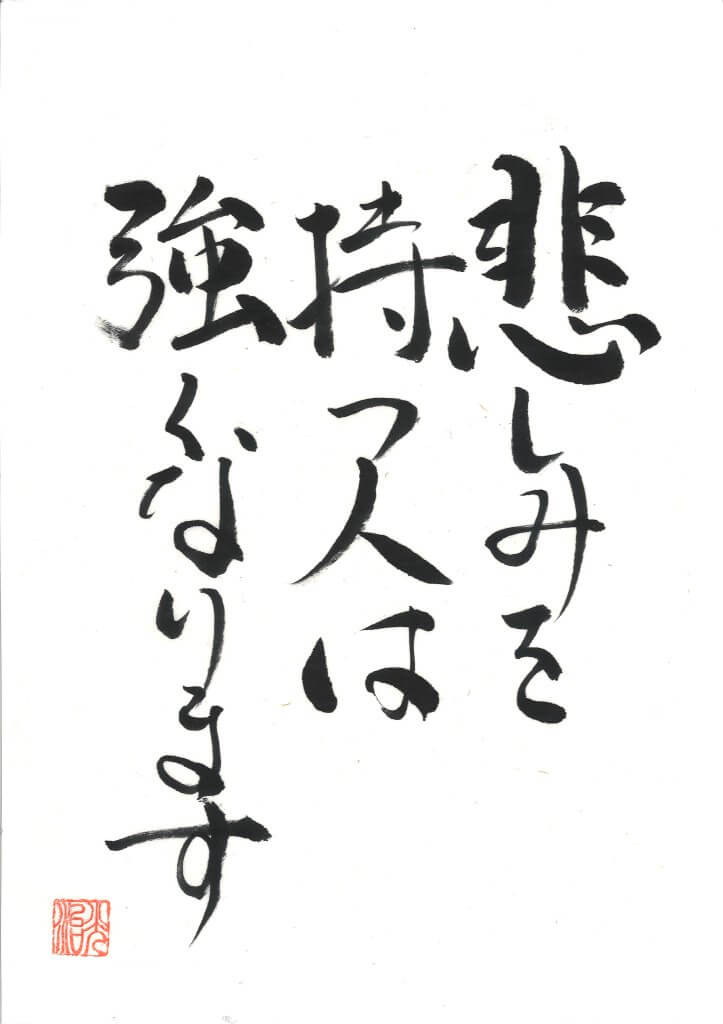 悲しみを
持つ人は
強くなります